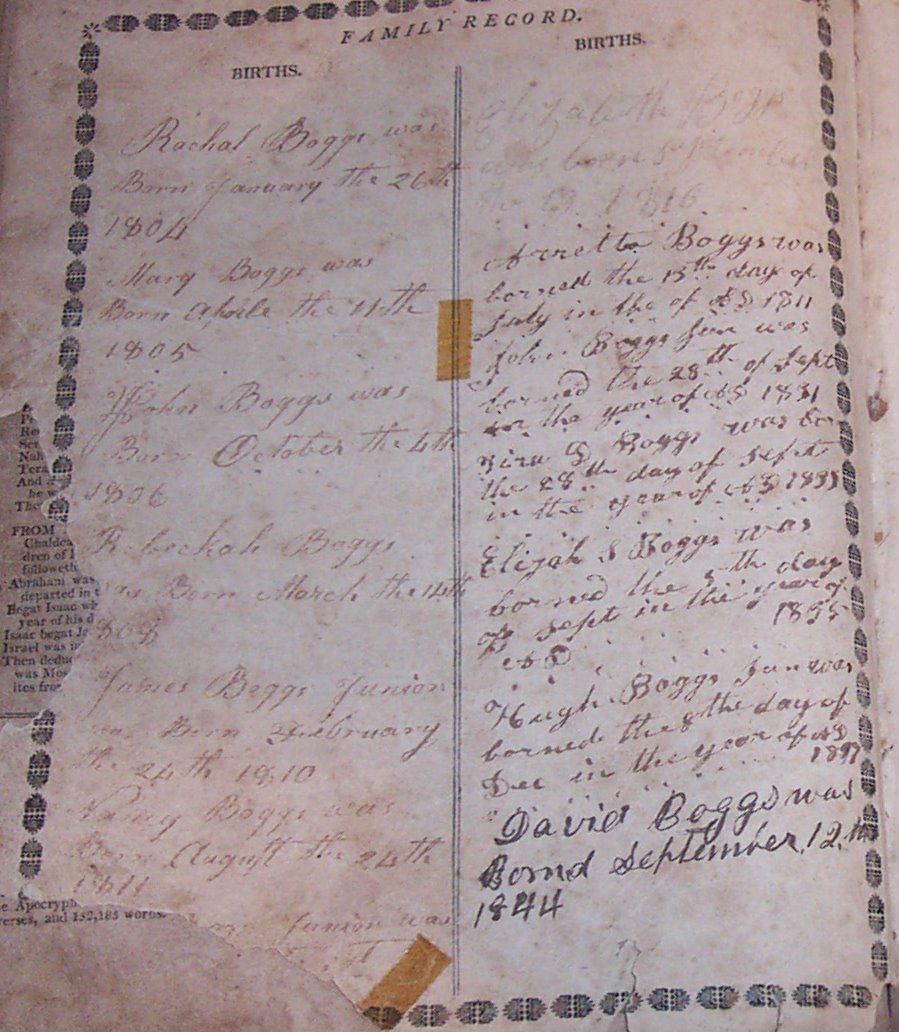 FAMILY RECORD.
BIRTHS.
Rachal Boggs was
Born January the 26th
1804
Mary Boggs was
Born Aprile the 11th
1805
John Boggs was
Born October the 4th
1806
Rebeckah Boggs
was Born March the 14th
808
James Boggs Junior
was Born February
the 24th 1810
Nancy Boggs was
Born August the 24th
1811
Junior was
BIRTHS.
Elizabeth Boggs
was born September
1816
Boggs was
borned the 15th day of
July in the of AD 1811
John Boggs Jun was
borned the 28th of Sept
in the year of AD 1831
Boggs was bor
the 28th day of Sept
in the year of AD
Elijah S Boggs was
borned the th day
of Sept in the year of
AD 1835
Hugh Boggs Jun was
borned the 8the day of
Dec in the year of AD
David Boggs was
Bornd September, 12, th
1844
FROM
Chaldea
dren of I
followeth
Abraham was
departed in t
Begat Isaac wh
year of his d
Isaac begat Ja
Israel was in
Then deduc
was Mos
ites fro
e Apocryph
verses, and 152,185 words.